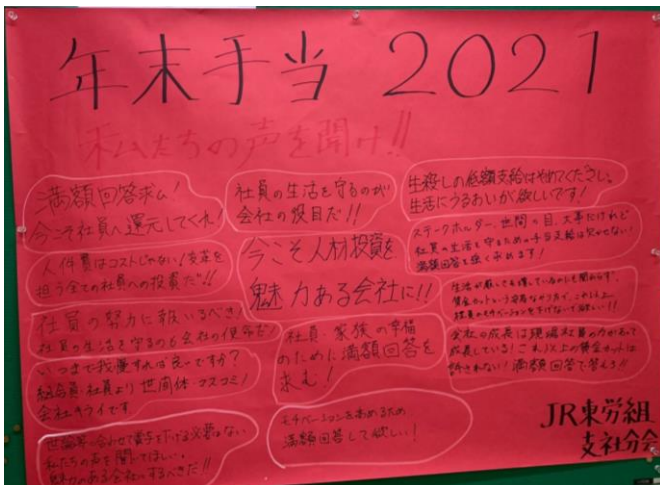 年末手当 2021
私たちの声を聞け!!
満額回答求ム!
今こそ社員へ還元してくれ!
人件費はコストじゃない!変革を
担う全ての社員への投資だ!!
社員の努力に報いるべき!
社員の生活を守るのも会社の使命だ!
いつまで我慢すれば良いですか?
組合員・社員より世間体・マスコミ!
会社キライです
私たちの声を聞いてほしい。
魅力ある会社にするべきだ!!
社員の生活を守るのが
会社の役目だ!!
今こそ人材投資を
魅力ある会社に!!
社員・家族の幸福
のために満額回答を
求む!
モチベーションを高めるため
満額回答して欲しい!
生殺しの低額支給はやめてください。
生活にうるおいが欲しいです!
ステークホルダー、世間の目、大事だけれど
社員の生活を守るための手当支給は欠かせない!
満額回答を強く求めます!
生活が厳しくも
会社の成長は現場社員の力があって
成長している!これ以上の賃金カットは
許されない!満額回答で答えろ!!
JR東労組
支社分会